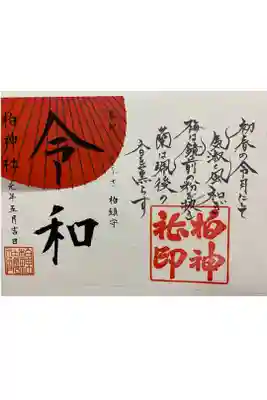 初春の令月にして
気淑く風和ぎ
梅は鏡前の粉を披き
蘭は珮後の
香を薫らす
柏神
社印
柏鎮守
令和
柏神社
元年五月吉日